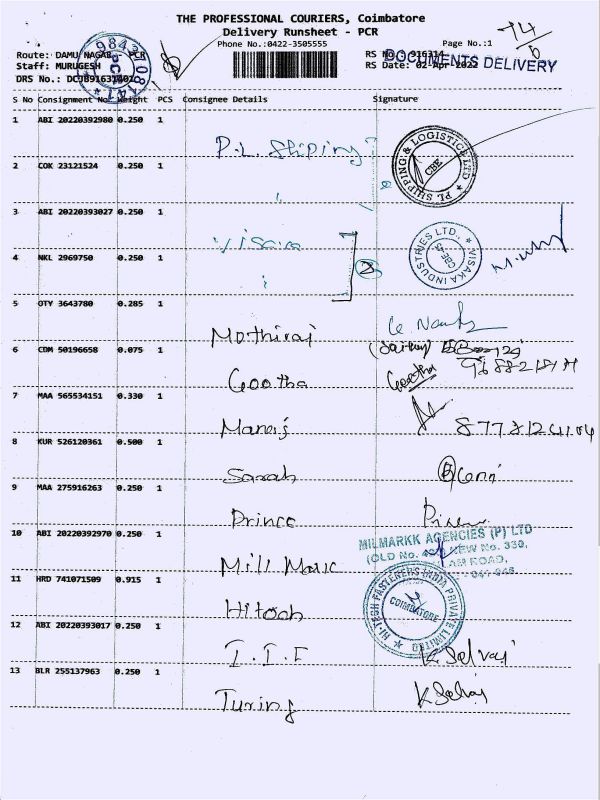 THE PROFESSIONAL COURIERS, Coimbatore
Delivery Runsheet - PCR
Phone No.:0422-3505555
Page No.:1
74/6
Route: DAMU NAGAR, PCR
RS No.: 916314
DOCUMENTS DELIVERY
Staff: MURUGESH
RS Date: 02-Apr-2022
DRS No.:
S No Consignment No Weight PCS Consignee Details Signature
1 ABI 20220392980 0.250 1
P.L. Shiping
PL SHIPPING & LOGISTICS LTD
CBE
2 COK 23121524 0.250 1
3 ABI 20220393027 0.250 1
Visaka
VISAKA INDUSTRIES LTD.,
CBE-45
4 NKL 2969750 0.250 1
5 OTY 3643780 0.285 1
Mothiraj
6 CDM 50196658 0.075 1
Geetha
Geetha
7 MAA 565534151 0.330 1
Manoj
8 KUR 526120361 0.500 1
Sarah
9 MAA 275916263 0.250 1
Prince
10 ABI 20220392970 0.250 1
Mill Marc
MILMARKK AGENCIES (P) LTD
NEW No. 330,
11 HRD 741071509 0.915 1
Hitech
HI-TECH FASTENERS INDIA PRIVATE LIMITED
COIMBATORE
12 ABI 20220393017 0.250 1
I.I.F
K Selvaj
13 BLR 255137963 0.250 1
Turing
K Selvaj